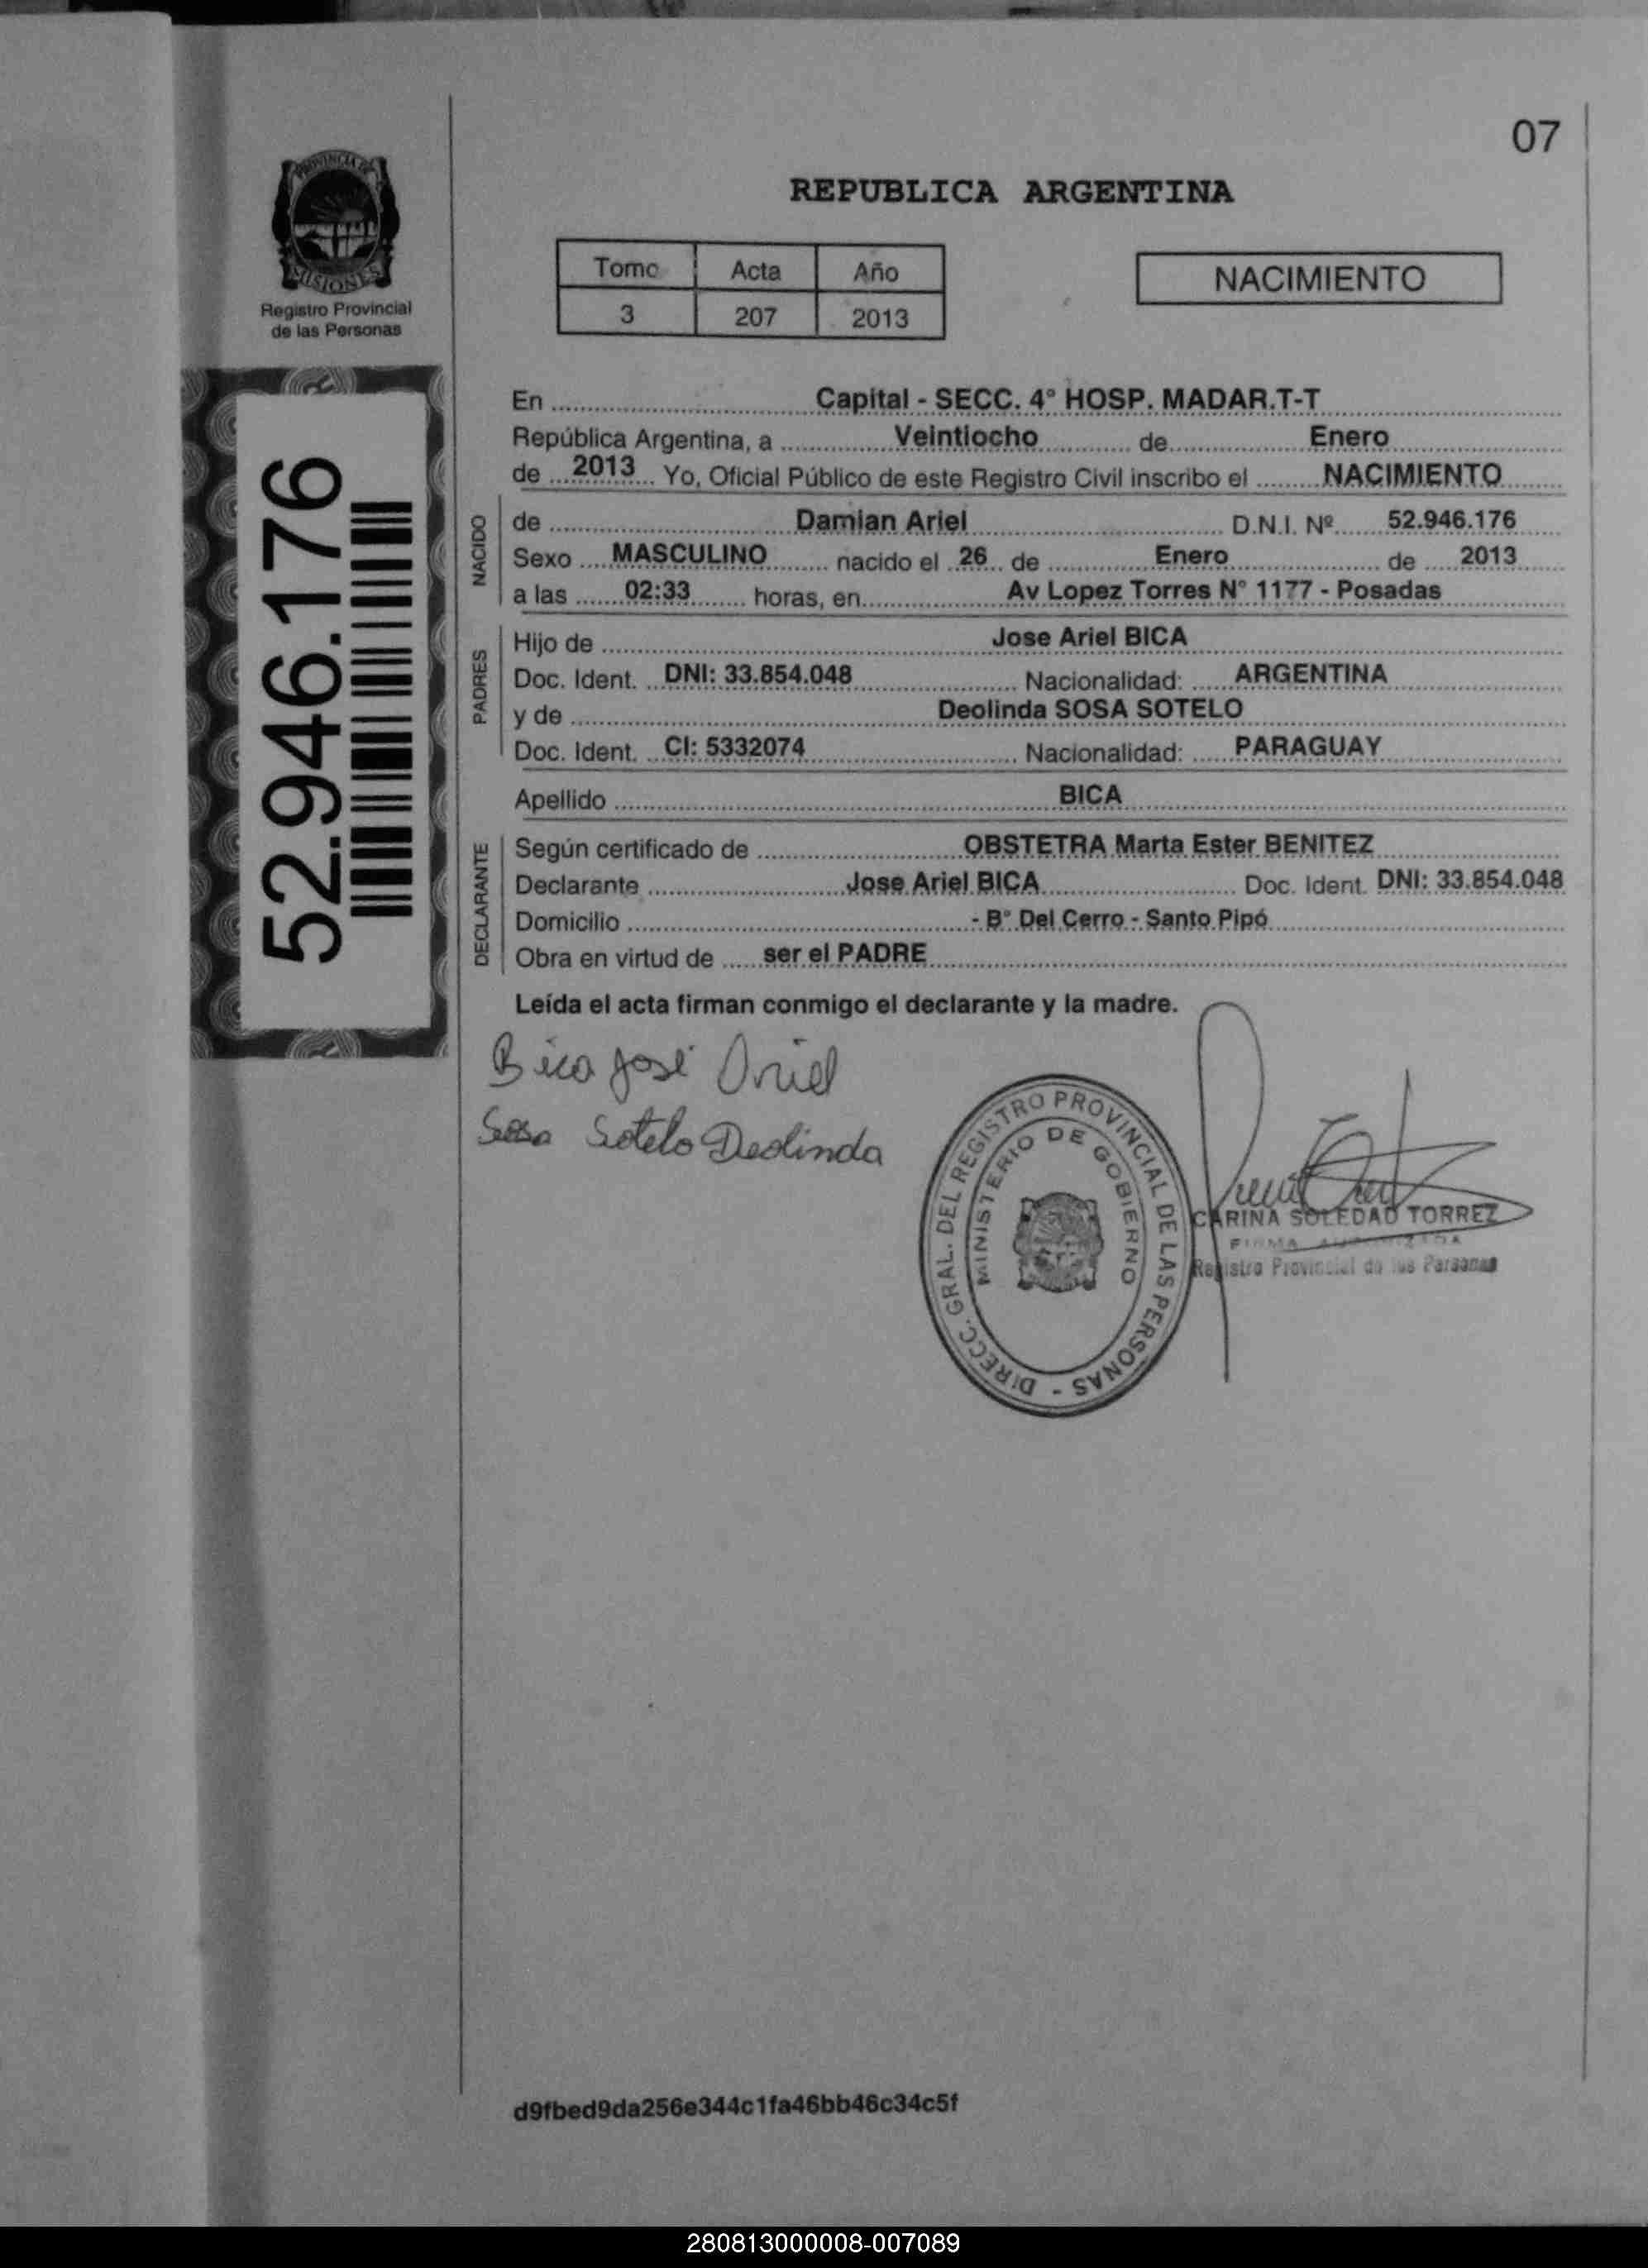 07
PROVINCIA DE
MISIONES
Registro Provincial
de las Personas
REPUBLICA ARGENTINA
Tomo Acta Año
3 207 2013
NACIMIENTO
52.946.176
En Capital - SECC. 4° HOSP. MADAR.T-T
República Argentina, a Veintiocho de Enero
de 2013 Yo, Oficial Público de este Registro Civil inscribo el NACIMIENTO
NACIDO
de Damian Ariel D.N.I. Nº 52.946.176
Sexo MASCULINO nacido el 26 de Enero de 2013
a las 02:33 horas, en Av Lopez Torres N° 1177 - Posadas
PADRES
Hijo de Jose Ariel BICA
Doc. Ident. DNI: 33.854.048 Nacionalidad: ARGENTINA
y de Deolinda SOSA SOTELO
Doc. Ident. CI: 5332074 Nacionalidad: PARAGUAY
Apellido BICA
DECLARANTE
Según certificado de OBSTETRA Marta Ester BENITEZ
Declarante Jose Ariel BICA Doc. Ident. DNI: 33.854.048
Domicilio - B° Del Cerro - Santo Pipó
Obra en virtud de ser el PADRE
Leída el acta firman conmigo el declarante y la madre.
Bica José Ariel
Sosa Sotelo Deolinda
DIRECC. GRAL. DEL REGISTRO PROVINCIAL DE LAS PERSONAS -
MINISTERIO DE GOBIERNO
CARINA SOLEDAD TORREZ
FIRMA AUTORIZADA
Registro Provincial de las Personas
d9fbed9da256e344c1fa46bb46c34c5f
280813000008-007089